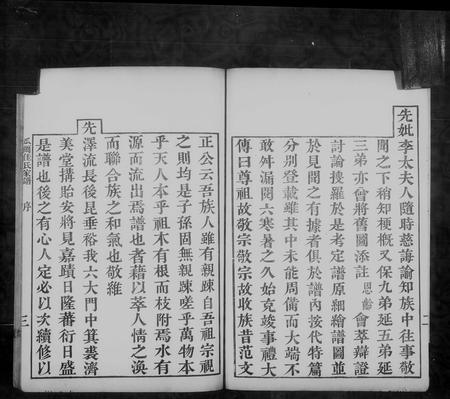 先妣李太夫人隨時慈誨諭知族中往事敬
聞之下稍知梗概又保九弟延五弟延
三弟亦曾將舊圖添註思齡會萃辯證
討論搜羅於是考定譜原細繪譜圖並
於見聞之有據者俱於譜內按代特篇
分別登載雖其中未能周備而大端不
敢舛漏閱六寒暑之久始克竣事禮大
傳曰尊祖故敬宗敬宗故收族昔范文
二
正公云吾族人雖有親踈自吾祖宗視
之則均是子孫固無親踈嗟乎萬物本
乎天人本乎祖木有根而枝附焉水有
源而流出焉譜也者藉以萃人情之渙
而聯合族之和氣也敬維
先澤流長後昆垂裕我六大門中箕裘濟
美堂搆貽安將見嘉蹟日隆蕃衍日盛
是譜也後之有心人定必以次續修以
氏家譜 序 三